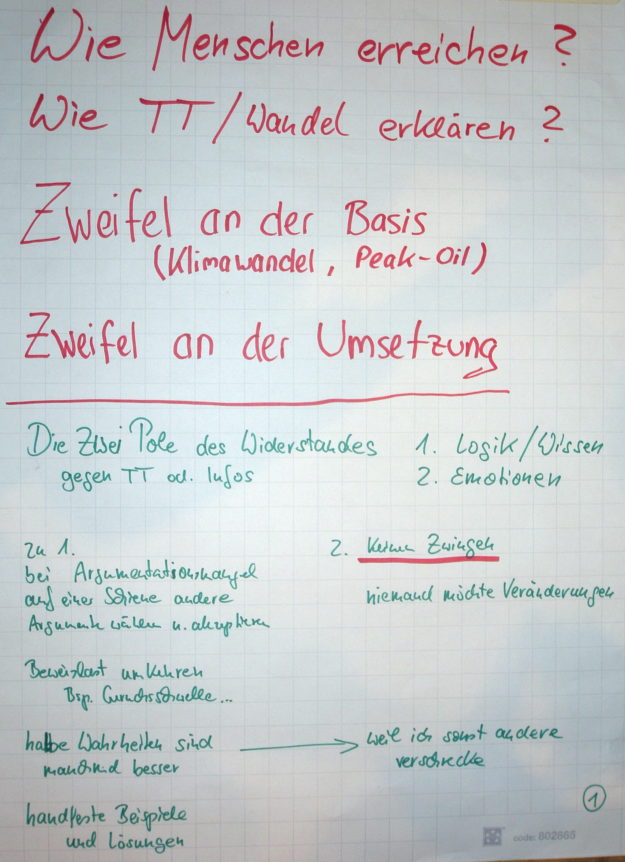 Wie Menschen erreichen ?
Wie TT / Wandel erklären ?
Zweifel an der Basis
(Klimawandel, Peak-Oil)
Zweifel an der Umsetzung
Die Zwei Pole des Widerstandes
gegen TT od. Infos
1. Logik/Wissen
2. Emotionen
zu 1.
bei Argumentationsmangel
auf einer Schiene andere
Argumente wählen u. akzeptieren
Beweislast umkehren
Bsp. Geruchsschwelle...
halbe Wahrheiten sind
manchmal besser
handfeste Beispiele
und Lösungen
2. Keinen Zwingen
niemand möchte Veränderungen
weil ich sonst andere
verschrecke
1
code: 802865